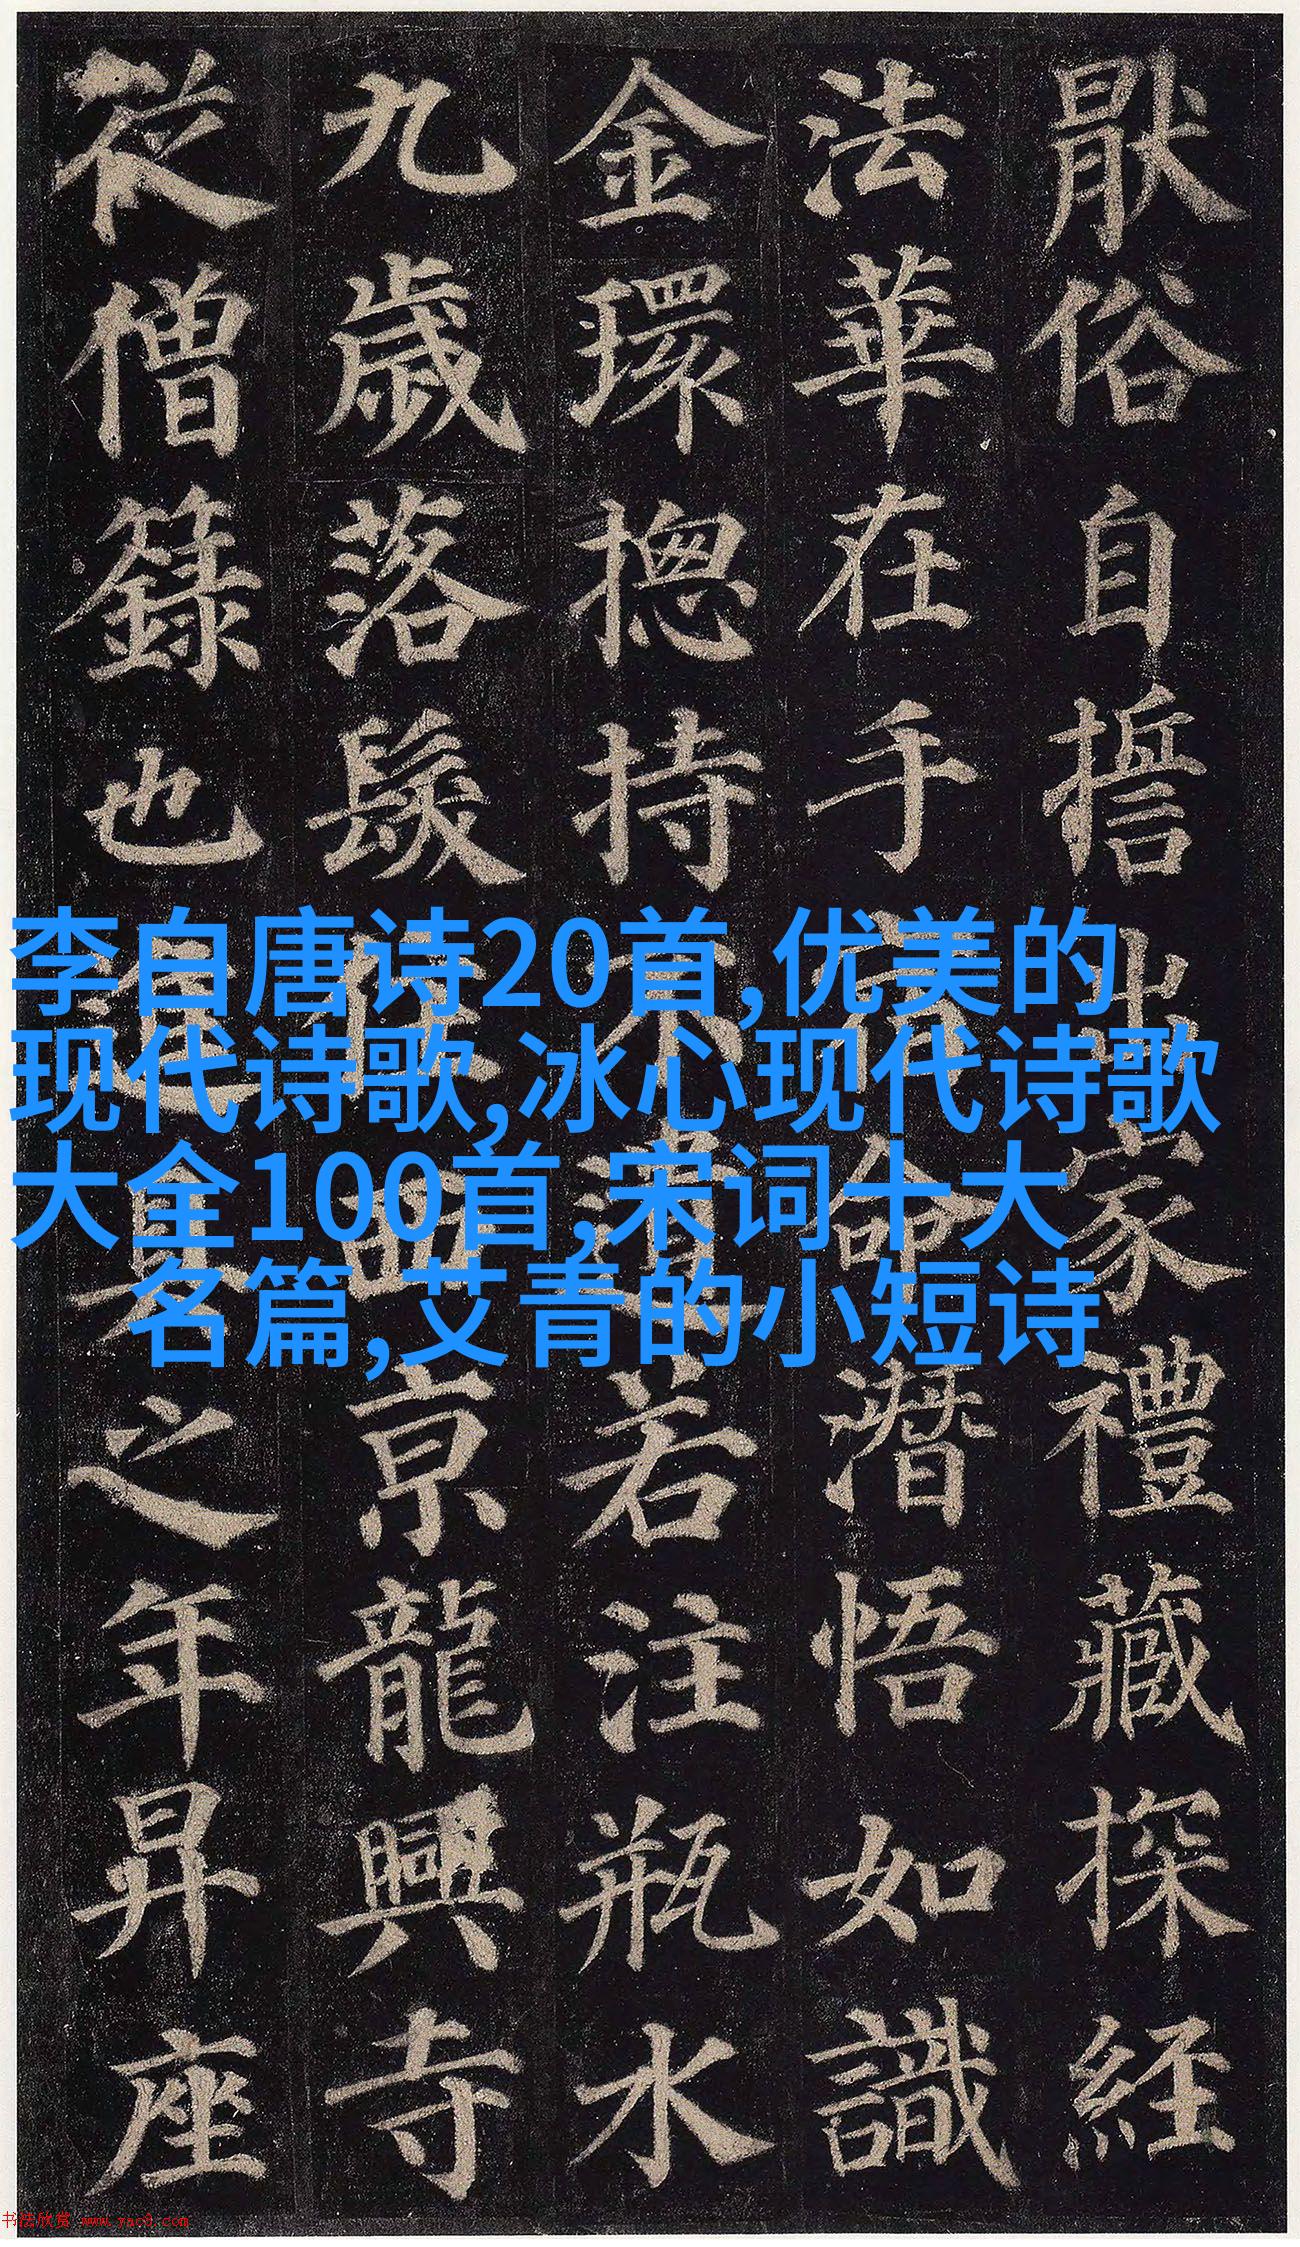 猒俗自誓出家禮藏探經
法華在手宿命潛悟如識
金環揔持不遺若注瓶水
九歲落髮住西京龍興寺
從僧籙也進具之年昇座
李白唐诗20首,优美的
现代诗歌,冰心现代诗歌
大全100首,宋词十大
名篇,艾青的小短诗
书法欣赏 www.yac8.com